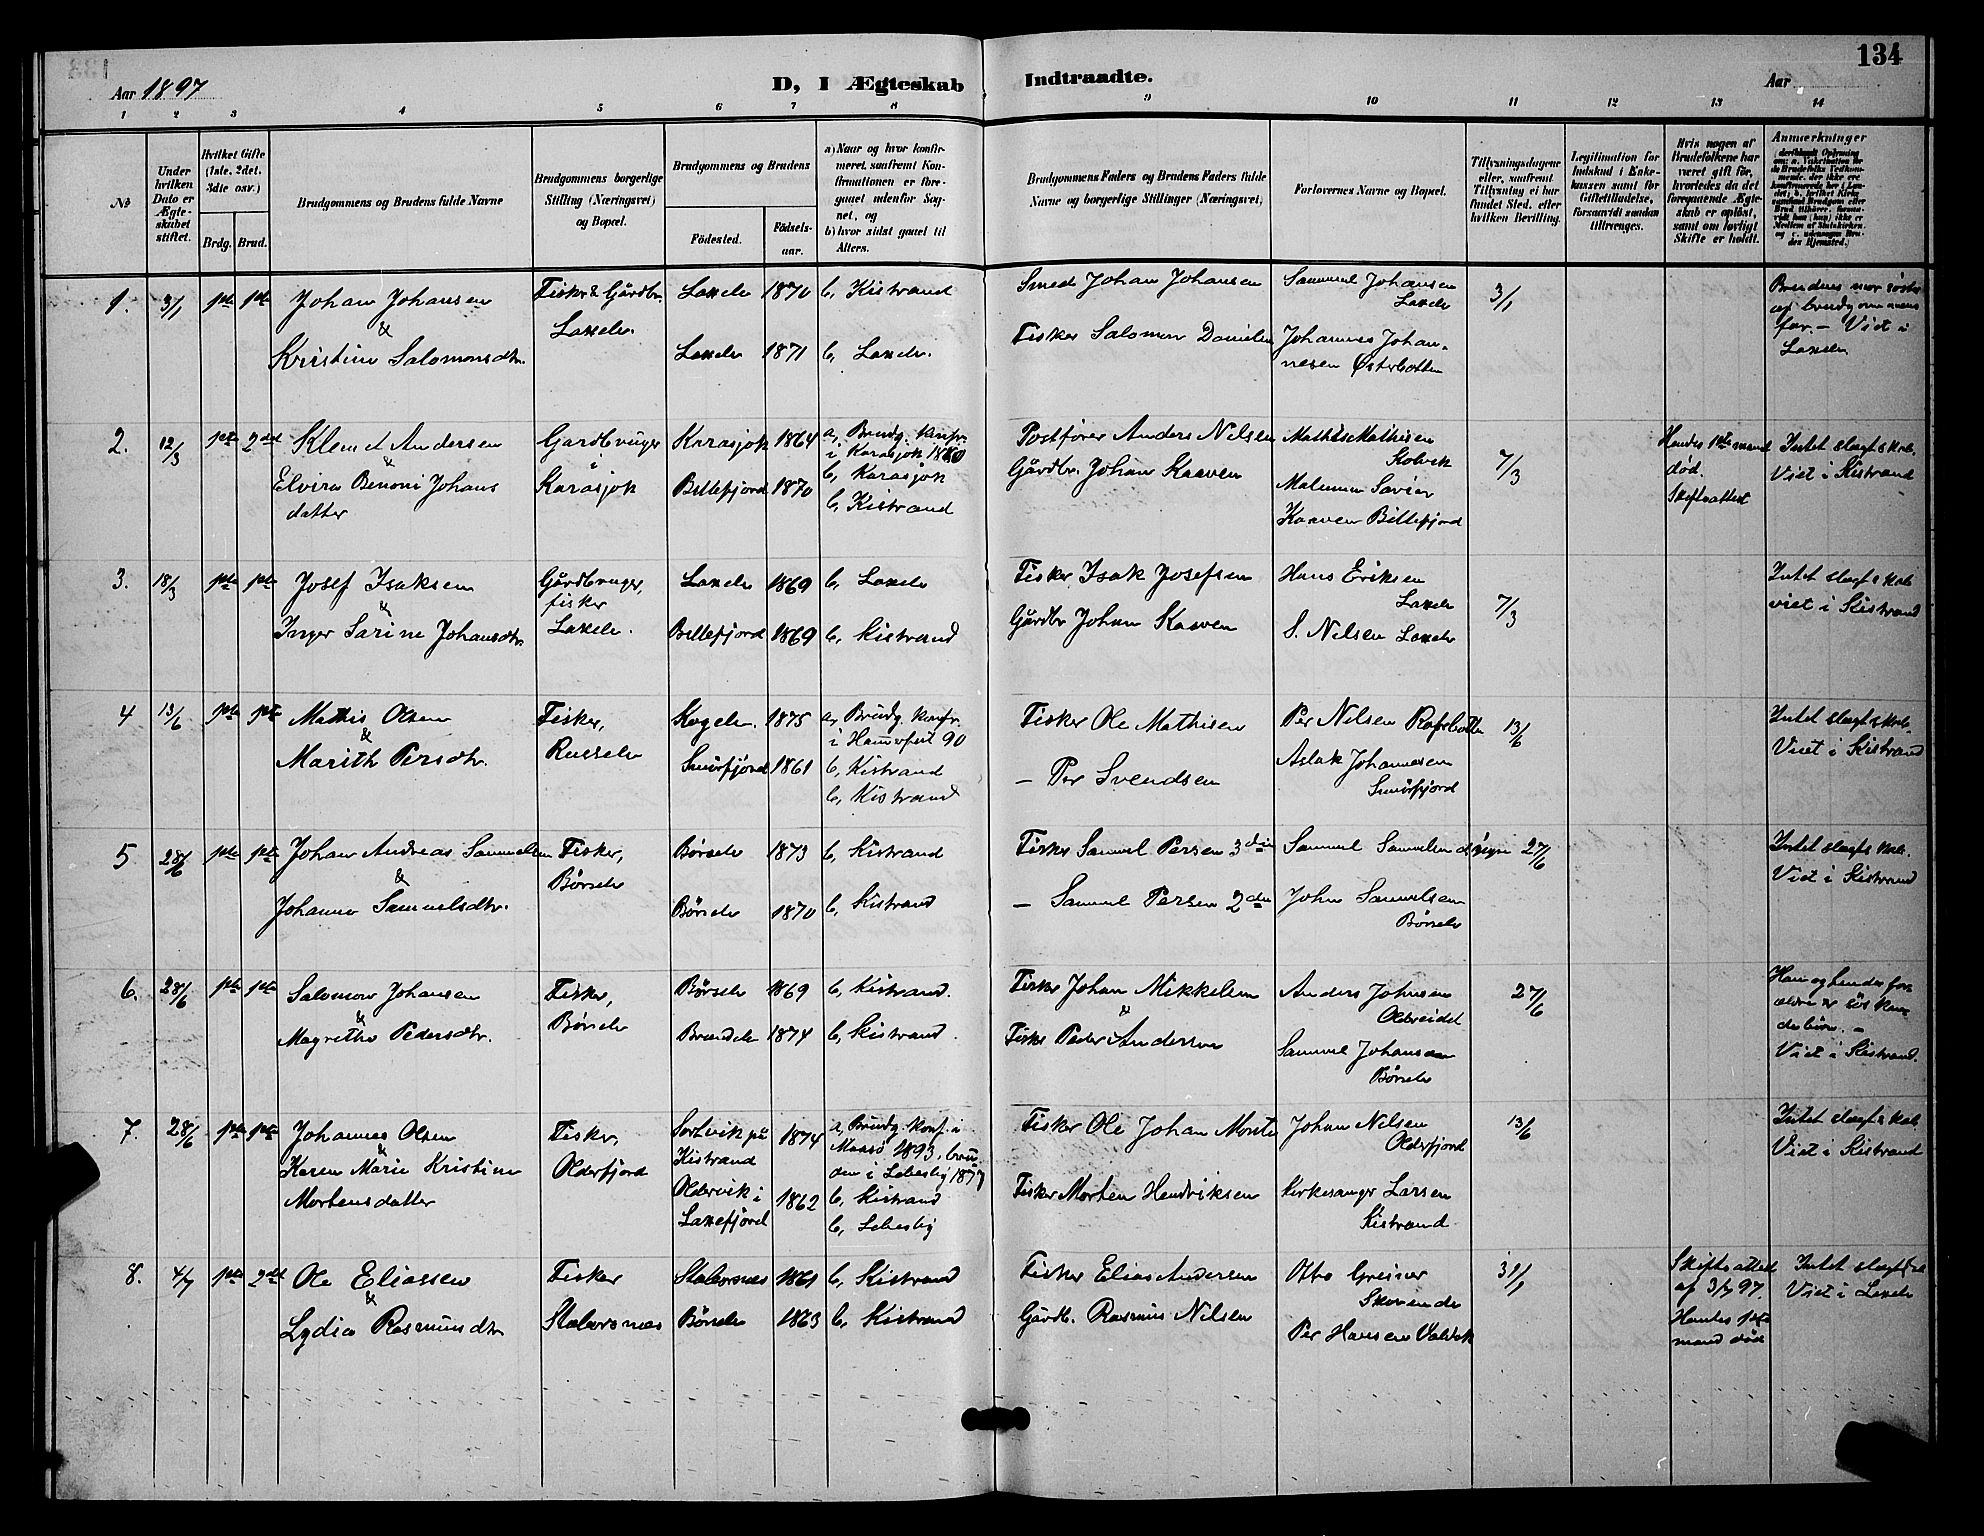 134
Aar 1897
D, I Ægteskab Indtraadte.
Aar
1 2 3 4 5 6 7 8 9 10 11 12 13 14
No
Under hvilken Dato er Ægteskabet stiftet.
Hvilket Gifte (1ste, 2det, 3die osv.)
Brdg. Brud.
Brudgommens og Brudens fulde Navne
Brudgommens borgerlige Stilling (Næringsvei) og Bopæl.
Brudgommens og Brudens
Fødested.
Fødselsaar.
a) Naar og hvor konfirmeret, saafremt Konfirmationen er foregaaet udenfor Sognet, og
b) hvor sidst gaaet til Alters.
Brudgommens Faders og Brudens Faders fulde Navne og borgerlige Stillinger (Næringsvei)
Forlovernes Navne og Bopæl.
Tillysningsdagene eller, saafremt Tillysning ei har fundet Sted, efter hvilken Bevilling.
Legitimation for Indskud i Enkekassen samt for Giftetilladelse, forsaavidt saadan tiltrænges.
Hvis nogen af Brudefolkene har været gift før, hvorledes da det foregaaende Ægteskab er opløst, samt om lovligt Skifte er holdt.
Anmærkninger
1. 3/1 1ste 1ste
Johan Johansen
&
Kristine Salomonsdtr.
Fisker & Gårdbr.
Laxelv.
Laxelv 1870 b, Kistrand
Laxelv 1871 b, Laxelv.
Smed Johan Johansen
Fisker Salomon Danielsen
Samuel Johansen
Laxelv
Johannes Johannesen Østerbotten
3/1
Brudens mor søster
af brudgommens
far. – Viet i
Laxelv
2. 12/3 1ste 2det
Klemet Andersen
&
Elvira Benoni Johans
datter
Gardbruger
i
Karasjok
Karasjok 1864
Billefjord 1870
a, Brudg. konfr.
i Karasjok 1880
b, Karasjok
b, Kistrand
Postfører Anders Nilsen
Gårdbr. Johan Kaaven
Mathis Mathisen
Kolvik
Kaaven Billefjord
7/3
Hendes 1ste mand
død.
Skifteattest
Intet slægtskab.
Viet i Kistrand
3. 18/3 1ste 1ste
Josef Isaksen
&
Inger Sarine Johansdtr.
Gårdbruger,
fisker
Laxelv.
Laxelv 1869 b, Laxelv
Billefjord 1869 b, Kistrand
Fisker Isak Josefsen
Gårdbr Johan Kaaven
Hans Eriksen
Laxelv
S. Nilsen Laxelv
7/3
Intet slægtskab
viet i Kistrand
4 13/6 1ste 1ste
Mathis Olsen
&
Marith Persdtr.
Fisker,
Russelv
1875
Smørfjord 1861
a, Brudg. konfr.
i Hammerfest 90
b, Kistrand
b, Kistrand
Fisker Ole Mathisen
– Per Svendsen
Per Nilsen
Aslak Johannesen
Smørfjord
13/6
Intet slægtskab.
Viet i Kistrand
5 28/6 1ste 1ste
Johan Andreas Samuelsen
&
Johanne Samuelsdtr.
Fisker,
Børselv
Børselv 1873 b, Kistrand
Børselv 1870 b, Kistrand
Fisker Samuel Persen 3die
– Samuel Persen 2den
Samuel Samuelsen d. yngre
John Samuelsen
Børselv
27/6
Intet slægtskab.
Viet i Kistrand
6. 28/6 1ste 1ste
Salomon Johansen
&
Magrethe Pedersdtr.
Fisker,
Børselv
Børselv 1869 b, Kistrand.
Brændelv 1874 b, Kistrand.
Fisker Johan Mikkelsen
&
Fisker Peder Andersen
Anders Johnsen
Oldereidet
Samuel Johansen
Børselv
27/6
Han og hendes for
ældre er søsken
debørn. –
Viet i Kistrand.
7. 28/6 1ste 1ste
Johannes Olsen
&
Karen Marie Kristine
Mortensdatter
Fisker,
Olderfjord
Sortvik på
Kistrand 1874
Oldervik i
Laxefjord 1862
a, Brudg. konf. i
Maasø 1893, bru
den i Lebesby 1877
b, Kistrand
b, Lebesby
Fisker Ole Johan Monte
Fisker Morten Hendriksen
Johan Nilsen
Olderfjord
Kirkesanger Larsen
Kistrand
13/6
Intet slægtskab
Viet i Kistrand
8. 4/7 1ste 2det
Ole Eliassen
&
Lydia Rasmusdtr
Fisker
Stabursnæs
Stabursnæs 1861 b, Kistrand
Børselv 1863 b, Kistrand
Fisker Elias Andersen
Gårdb. Rasmus Nilsen
Otto Greiner
Per Hansen
31/1
Skifteattest
af 3/7 97.
Hendes 1ste
mand død
Intet slægtskab
Viet i Laxelv